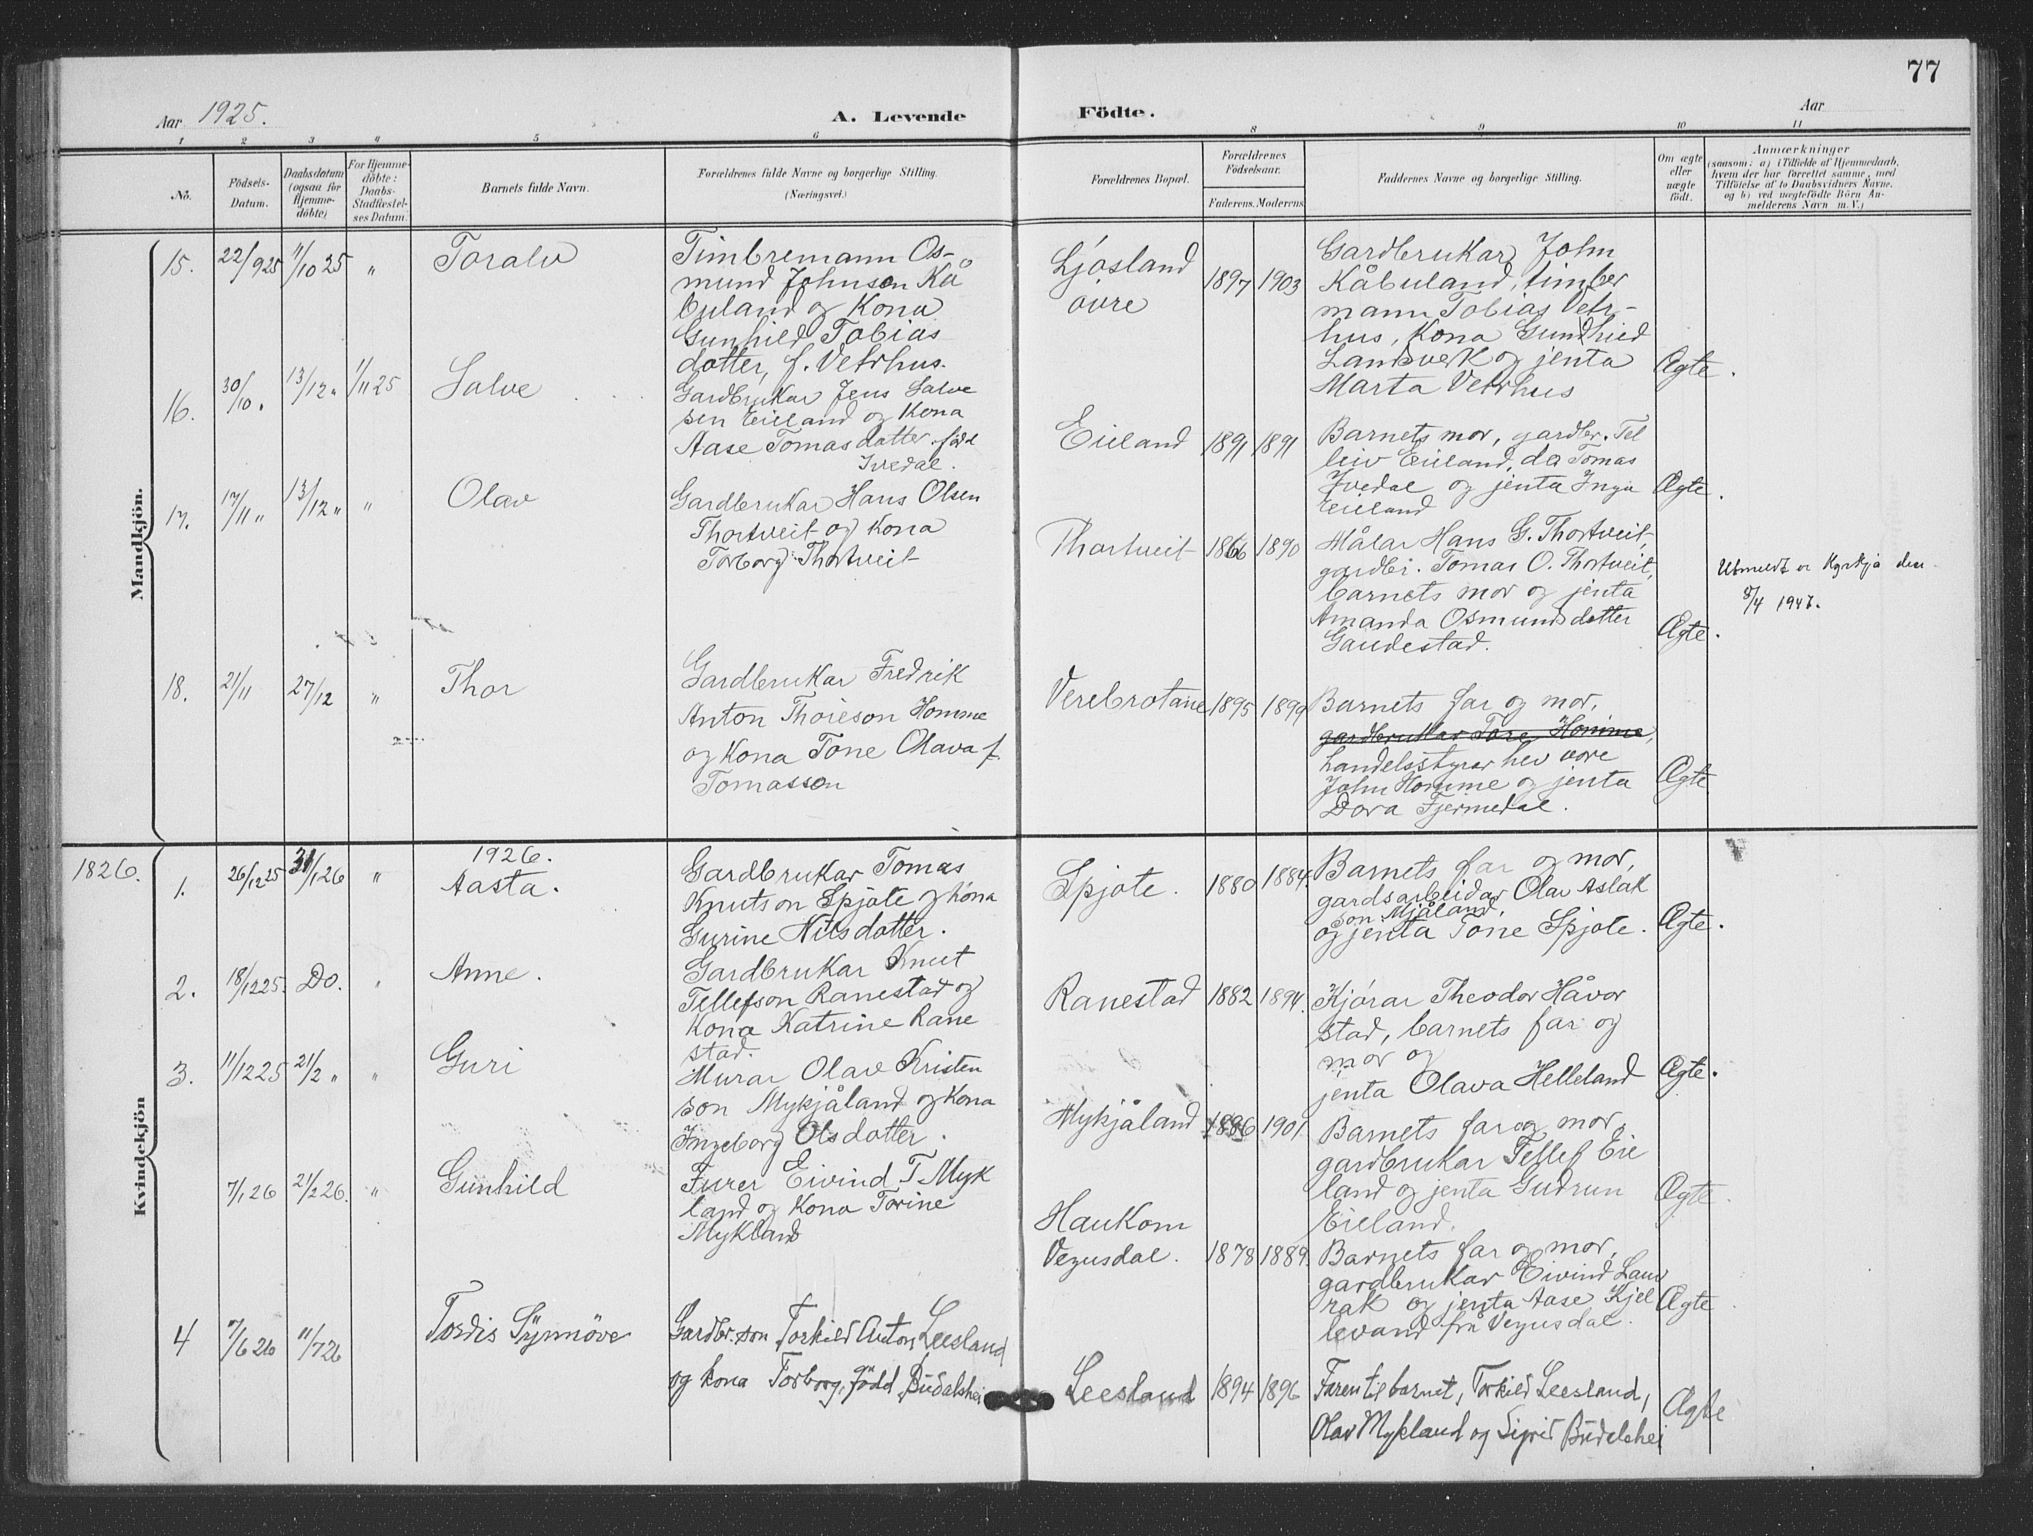 77
Aar 1925.
A. Levende Födte.
Aar
1 2 3 4 5 6 8 9 10 11
No.
Födsels-
Datum.
Daabsdatum
(ogsaa for
Hjemme-
döbte)
For Hjemme-
döbte:
Daabs-
Stadfæstel-
ses Datum.
Barnets fulde Navn.
Forældrenes fulde Navne og borgerlige Stilling.
(Næringsvei.)
Forældrenes Bopæl.
Forældrenes
Födselsaar.
Faderens. Moderens.
Faddernes Navne og borgerlige Stilling.
Om ægte
eller
uægte
födt.
Anmærkninger
(saasom: a) i Tilfælde af Hjemmedaab,
hvem der har forrettet samme, med
Tilföielse af to Daabsvidners Navne,
og b) ved uægtefödte Börn An-
melderens Navn m. V.)
Mandkjön.
15. 22/9 25 11/10 25 " Toralv
Timbremann Os-
mund Johnson Kå
buland og Kona
Gunhild Tobias
dotter, f. Vehrhus.
Ljósland
óvre
1897 1903
Gardbrukar John
Kåbuland, timber
mann Tobias Vehr-
hus, Kona Gundhild
Landsverk og jenta
Marta Vehrhus
Ægte.
16. 30/10 " 13/12 " 1/11 25 Salve
Gardbrukar Jens Salve
sen Eieland og Kona
Aase Tomasdotter född
Ivedal.
Eieland 1891 1891
Barnets mor, gardbr. Tel
leiv Eieland, do Tomas
Ivedal og jenta Inga
Eieland
Ægte.
17. 17/11 " 13/12 " " Olav
Gardbrukar Hans Olsen
Thortveit og Kona
Torborg Thortveit
Thortveit 1866 1890
Målar Hans G. Thortveit,
gardbr. Tomas O. Thortveit,
barnets mor og jenta
Amanda Osmundsdotter
Gaudestad.
Ægte.
Utmeldt or Kyrkja den
8/4 1947.
18. 21/11 27/12 " Thor
Gardbrukar Fredrik
Anton Thoreson Homme
og Kona Tone Olava f.
Tomasson
Verebrotane 1895 1899
Barnets far og mor,
gardbrukar Tore Homme,
handelsstyrar hev vore
John Homme og jenta
Dora Fjermedal.
Ægte
1826.
Kvindekjön
1926.
1. 26/12 25 31/1 26 " Aasta.
Gardbrukar Tomas
Knutson Spjote og Kona
Gurine Nilsdotter.
Spjote. 1880 1884.
Barnets far og mor,
gardsarbeidar Olav Aslak
son Mjåland,
og jenta Tone Spjote.
Ægte.
2. 18/12 25. Do. " Anne.
Gardbrukar Knut
Tellefson Ranestad og
Kona Katrine Rane
stad.
Ranestad 1882 1894.
Kjórar Theodor Håvor
stad, barnets far og
mor og
jenta Olava Helleland
Ægte.
3. 11/12 25 21/2 " " Guri
Murar Olav Kristen
son Mykjåland og Kona
Ingeborg Olsdotter.
Mykjåland 1886 1901
Barnets far og mor,
gardbrukar Tellef Eie
land og jenta Gudrun
Eieland.
Ægte.
7/1 26 21/2 26. " Gunhild
Furer Eivind T. Myk
land og Kona Torine
Mykland
Haukom
Vegusdal. 1878 1889.
Barnets far og mor,
gardbrukar Eivind Lauv
rak og jenta Aase Kjel
levand frå Vegusdal.
Ægte
4 7/6 26 11/7 26 Tordis Synnöve
Gardbr. son Torkild Anton Leesland
og kona Torborg, född Budalshei
Leesland 1894 1896
Faren til barnet, Torkild Leesland,
Olav Mykland og Sigrid Budalshei
Ægte